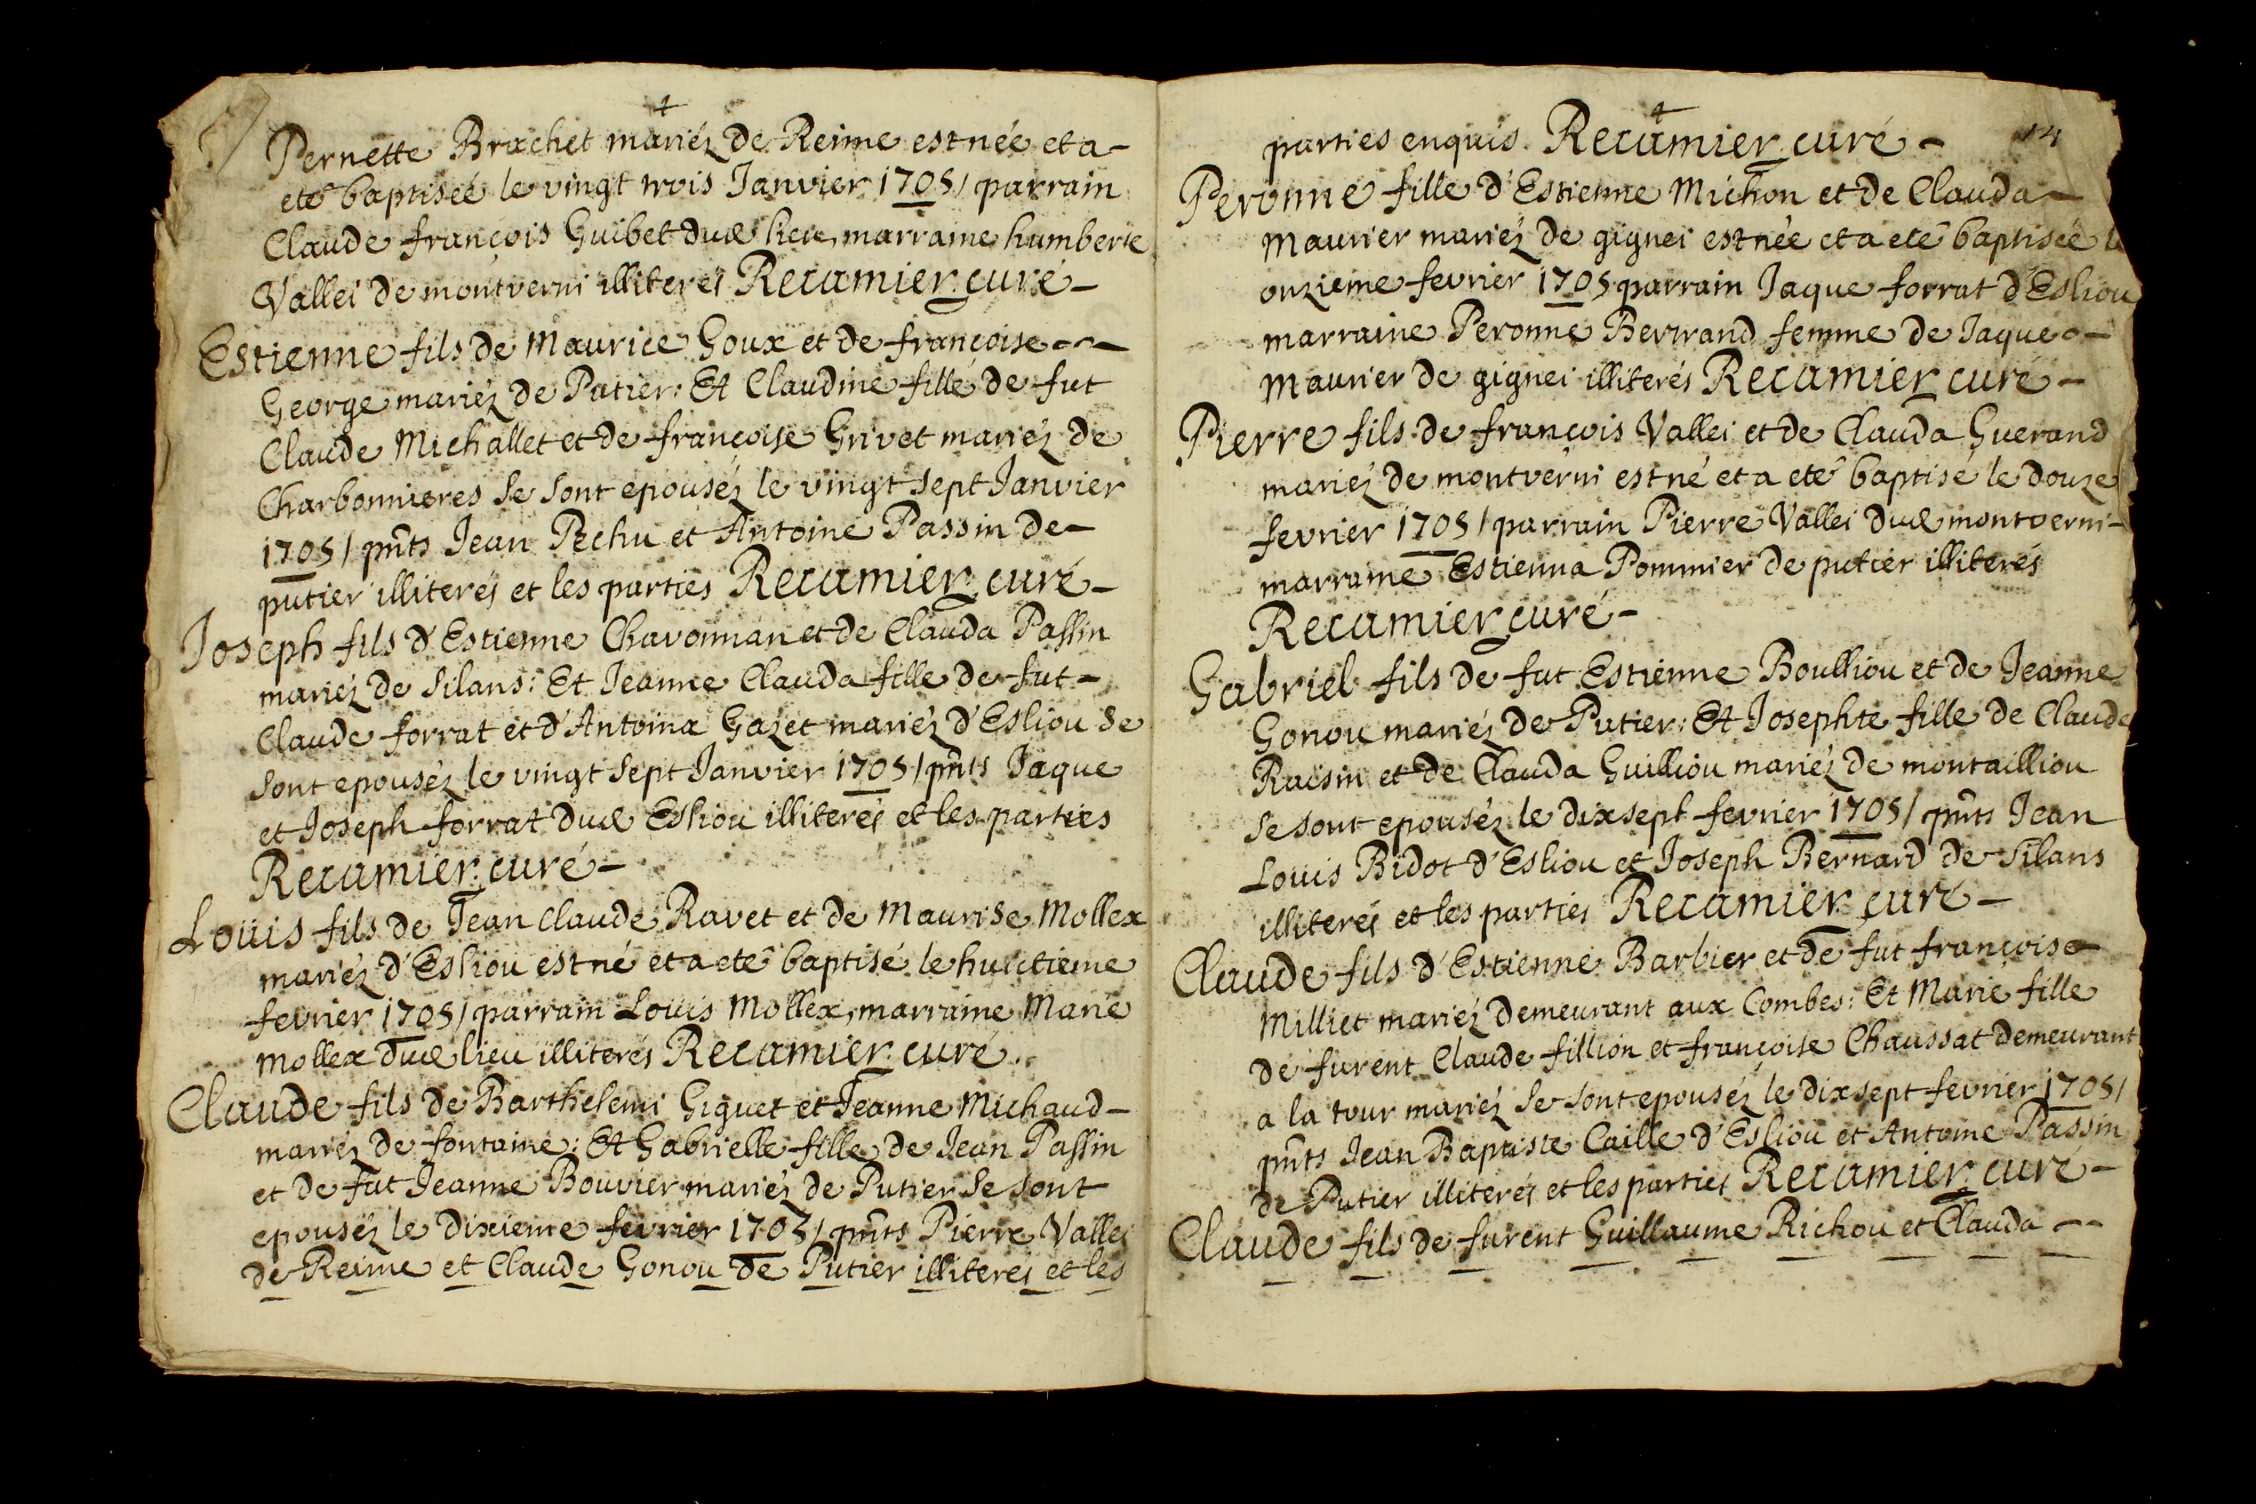 Pernette Brachet mariéz de Reime est née et a
eté baptisée le vingt trois Janvier 1705/ parrain
Claude françois Guibet dud lieu, marraine humberte
Vallei de montverni illiterés Recamier curé
Estienne fils de Maurice Goux et de françoise
George mariéz de Putier: Et Claudine fille de fut
Claude Michallet et de françoise Grivet mariéz de
Charbonnieres se sont epouséz le vingt sept Janvier
1705/ pnts Jean Pechu et Antoine Passin de
putier illiterés et les parties Recamier curé
Joseph fils d'Estienne Chavonnan et de Clauda Passin
mariéz de Silans: Et Jeanne Clauda fille de fut
Claude forrat et d'Antoina Gazet mariéz d'Esliou se
sont epouséz le vingt sept Janvier 1705/ pnts Jaque
et Joseph forrat dud Esliou illiterés et les parties
Recamier curé
Loüis fils de Jean claude Ravet et de Maurise Mollex
mariéz d'Esliou est né et a eté baptisé le huictieme
fevrier 1705/ parrain Louis Mollex, marraine Marie
Mollex dud lieu illiterés Recamier curé
Claude fils de Barthelemi Giguet et Jeanne Michaud
mariéz de fontaine: Et Gabrielle fille de Jean Passin
et de fut Jeanne Bouvier mariéz de Putier se sont
epouséz le dixieme fevrier 1705/ pnts Pierre Vallei
de Reime et Claude Gonou de Putier illiterés et les
14
parties enquis. Recamier curé
Peronne fille d'Estienne Michon et de Clauda
Maurier mariéz de gignei est née et a eté baptisée le
onzieme fevrier 1705 parrain Jaque forrat d'Esliou
marraine Peronne Bertrand femme de Jaque
Maurier de gignei illiterés Recamier curé
Pierre fils de françois Vallei et de Clauda Guerand
mariéz de montverni est né et a eté baptisé le douze
fevrier 1705/ parrain Pierre Vallei dud montverni
marraine Estienna Pommier de putier illiterés
Recamier curé
Gabriel fils de fut Estienne Boulliou et de Jeanne
Gonou mariéz de Putier: Et Josephte fille de Claude
Raisin et de Clauda Guilliou mariéz de montailliou
se sont epouséz le dixsept fevrier 1705/ pnts Jean
Louis Bidot d'Esliou et Joseph Bernard de Silans
illiterés et les parties Recamier curé
Claude fils d'Estienne Barbier et de fut françoise
Milliet mariéz demeurant aux Combes: Et Marie fille
de furent Claude fillion et françoise Chaussat demeurant
a la tour mariéz se sont epouséz le dixsept fevrier 1705/
pnts Jean Baptiste Caille d'Esliou et Antoine Passin
de Putier illiterés et les parties Recamier curé
Claude fils de furent Guillaume Richou et Clauda